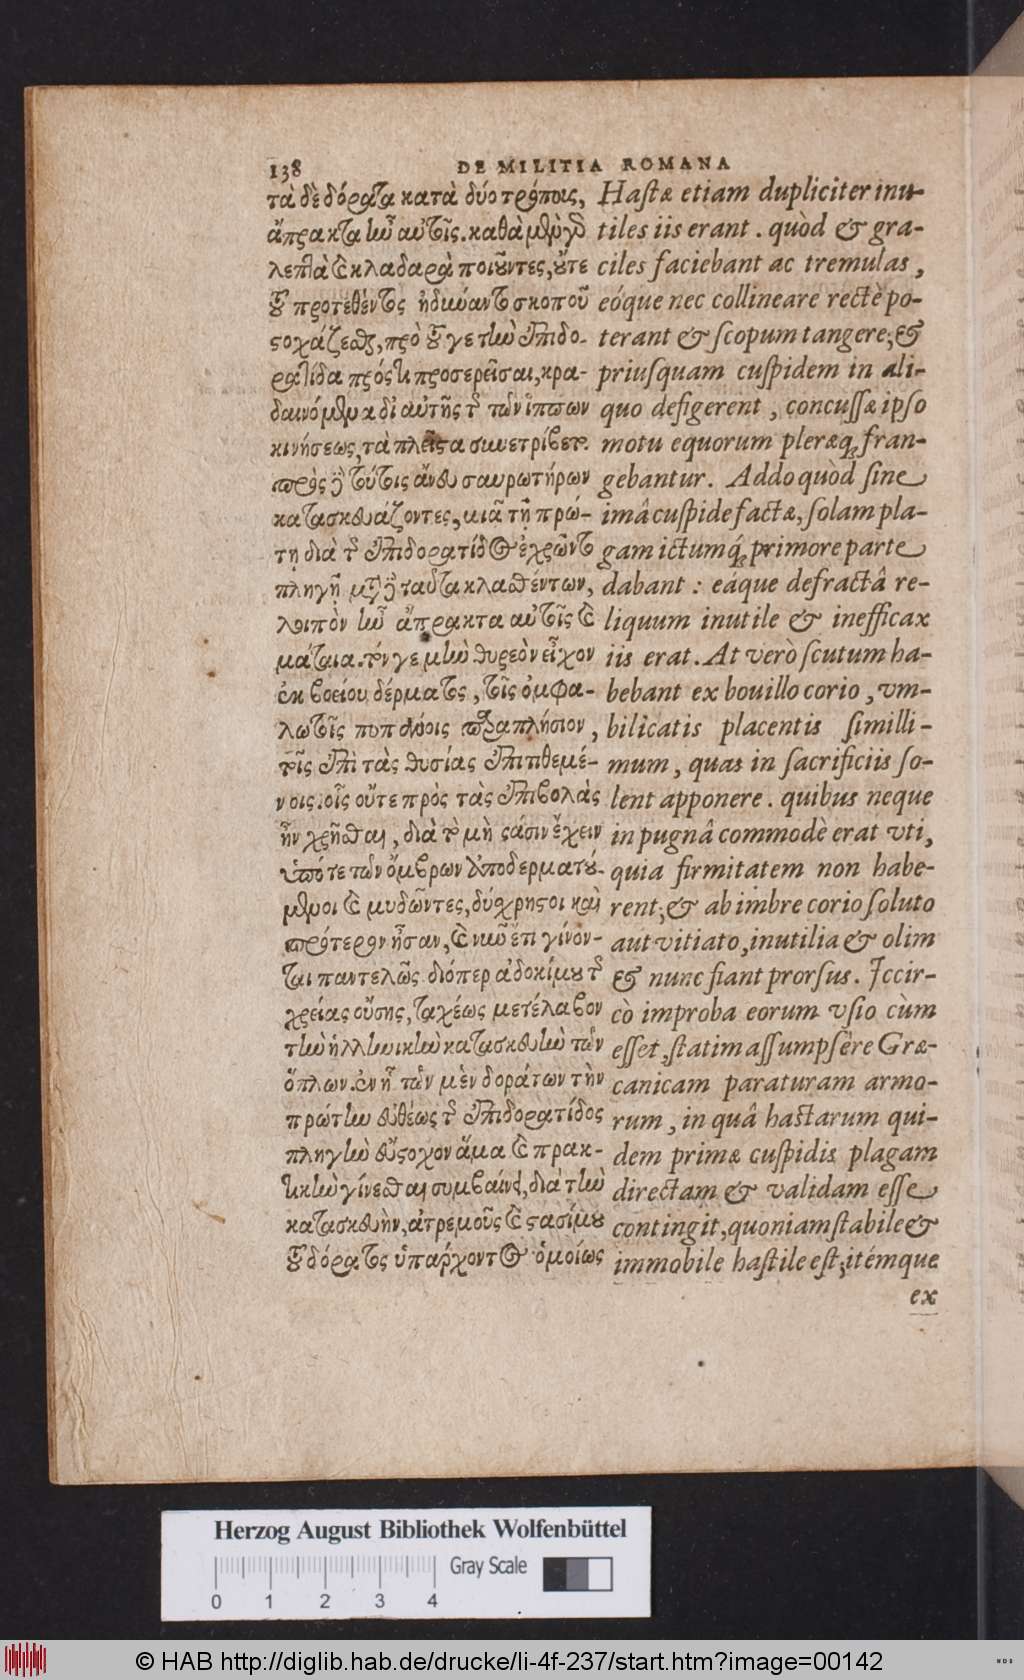 138 DE MILITIA ROMANA
τὰ δὲ δόρατα κατὰ δύο τρόποις,
ἄπρακτα ἦν αὐτοῖς. καθὰ μὲν γὸ
λεπτὰ καὶ κλαδαρὰ ποιοῦντες, οὔτε
τοῦ προτεθέντος ἠδύναντο σκοποῦ
στοχάζεσθαι, πρὸ τοῦ γε τὴν ἐπιδο-
ρατίδα πρός τι προσερεῖσαι, κρα-
δαινόμενα δι' αὐτῆς τῆς τῶν ἵππων
κινήσεως, τὰ πλεῖστα συνετρίβετο.
πρὸς δὲ τούτοις ἄνευ σαυρωτήρων
κατασκευάζοντες, μιᾶ τῇ πρώ-
τῃ διὰ τῆς ἐπιδορατίδος ἐχρῶντο
πληγῇ μετὰ δὲ ταῦτα κλασθέντων,
λοιπὸν ἦν ἄπρακτα αὐτοῖς καὶ
μάταια. τόν γε μὴν θυρεὸν εἶχον
ἐκ βοείου δέρματος, τοῖς ὀμφα-
λωτοῖς ποπάνοις παραπλήσιον,
τοῖς ἐπὶ τὰς θυσίας ἐπιτιθεμέ-
νοις. οἷς οὔτε πρὸς τὰς ἐπιβολὰς
ἦν χρῆσθαι, διὰ τὸ μὴ στάσιν ἔχειν
ὑπό τε τῶν ὄμβρων ἀποδερματού-
μενοι καὶ μυδῶντες, δύσχρηστοι καὶ
πρότερον ἦσαν, καὶ νῦν ἔτι γίνον-
ται παντελῶς. διόπερ ἀδοκίμου τῆς
χρείας οὔσης, ταχέως μετέλαβον
τὴν ἑλληνικὴν κατασκευὴν τῶν
ὅπλων. ἐν ᾗ τῶν μὲν δοράτων τὴν
πρώτην εὐθέως τῆς ἐπιδορατίδος
πληγὴν εὔστοχον ἅμα καὶ πρακ-
τικὴν γίνεσθαι συμβαίνει, διὰ τὴν
κατασκευὴν, ἀτρεμοῦς καὶ στασίμου
τοῦ δόρατος ὑπάρχοντος ὁμοίως
Hastæ etiam dupliciter inu-
tiles iis erant. quòd & gra-
ciles faciebant ac tremulas,
eóque nec collineare rectè po-
terant & scopum tangere; &
priusquam cuspidem in ali-
quo defigerent, concussæ ipso
motu equorum pleræq; fran-
gebantur. Addo quòd sine
imâ cuspide factæ, solam pla-
gam ictumq́; primore parte
dabant: eáque defractâ re-
liquum inutile & inefficax
iis erat. At verò scutum ha-
bebant ex bouillo corio, vm-
bilicatis placentis simılli-
mum, quas in sacrificiis so-
lent apponere. quibus neque
in pugnâ commodè erat vti,
quia firmitatem non habe-
rent; & ab imbre corio soluto
aut vitiato, inutilia & olim
& nunc fiant prorsus. Iccir-
cò improba eorum vsio cùm
esset, statim assumpsère Græ-
canicam paraturam armo-
rum, in quâ hastarum qui-
dem primæ cuspidis plagam
directam & validam esse
contingit, quoniam stabile &
immobile hastile est; itémque
ex
Herzog August Bibliothek Wolfenbüttel
0 1 2 3 4 Gray Scale
© HAB http://diglib.hab.de/drucke/li-4f-237/start.htm?image=00142